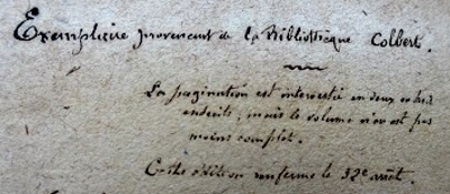 Exemplaire provenant de la Bibliothèque Colbert.
La pagination est intervertie en deux ou trois
endroits, mais le volume n'en est pas
moins complet.
Cette édition renferme le 32e arrêt.